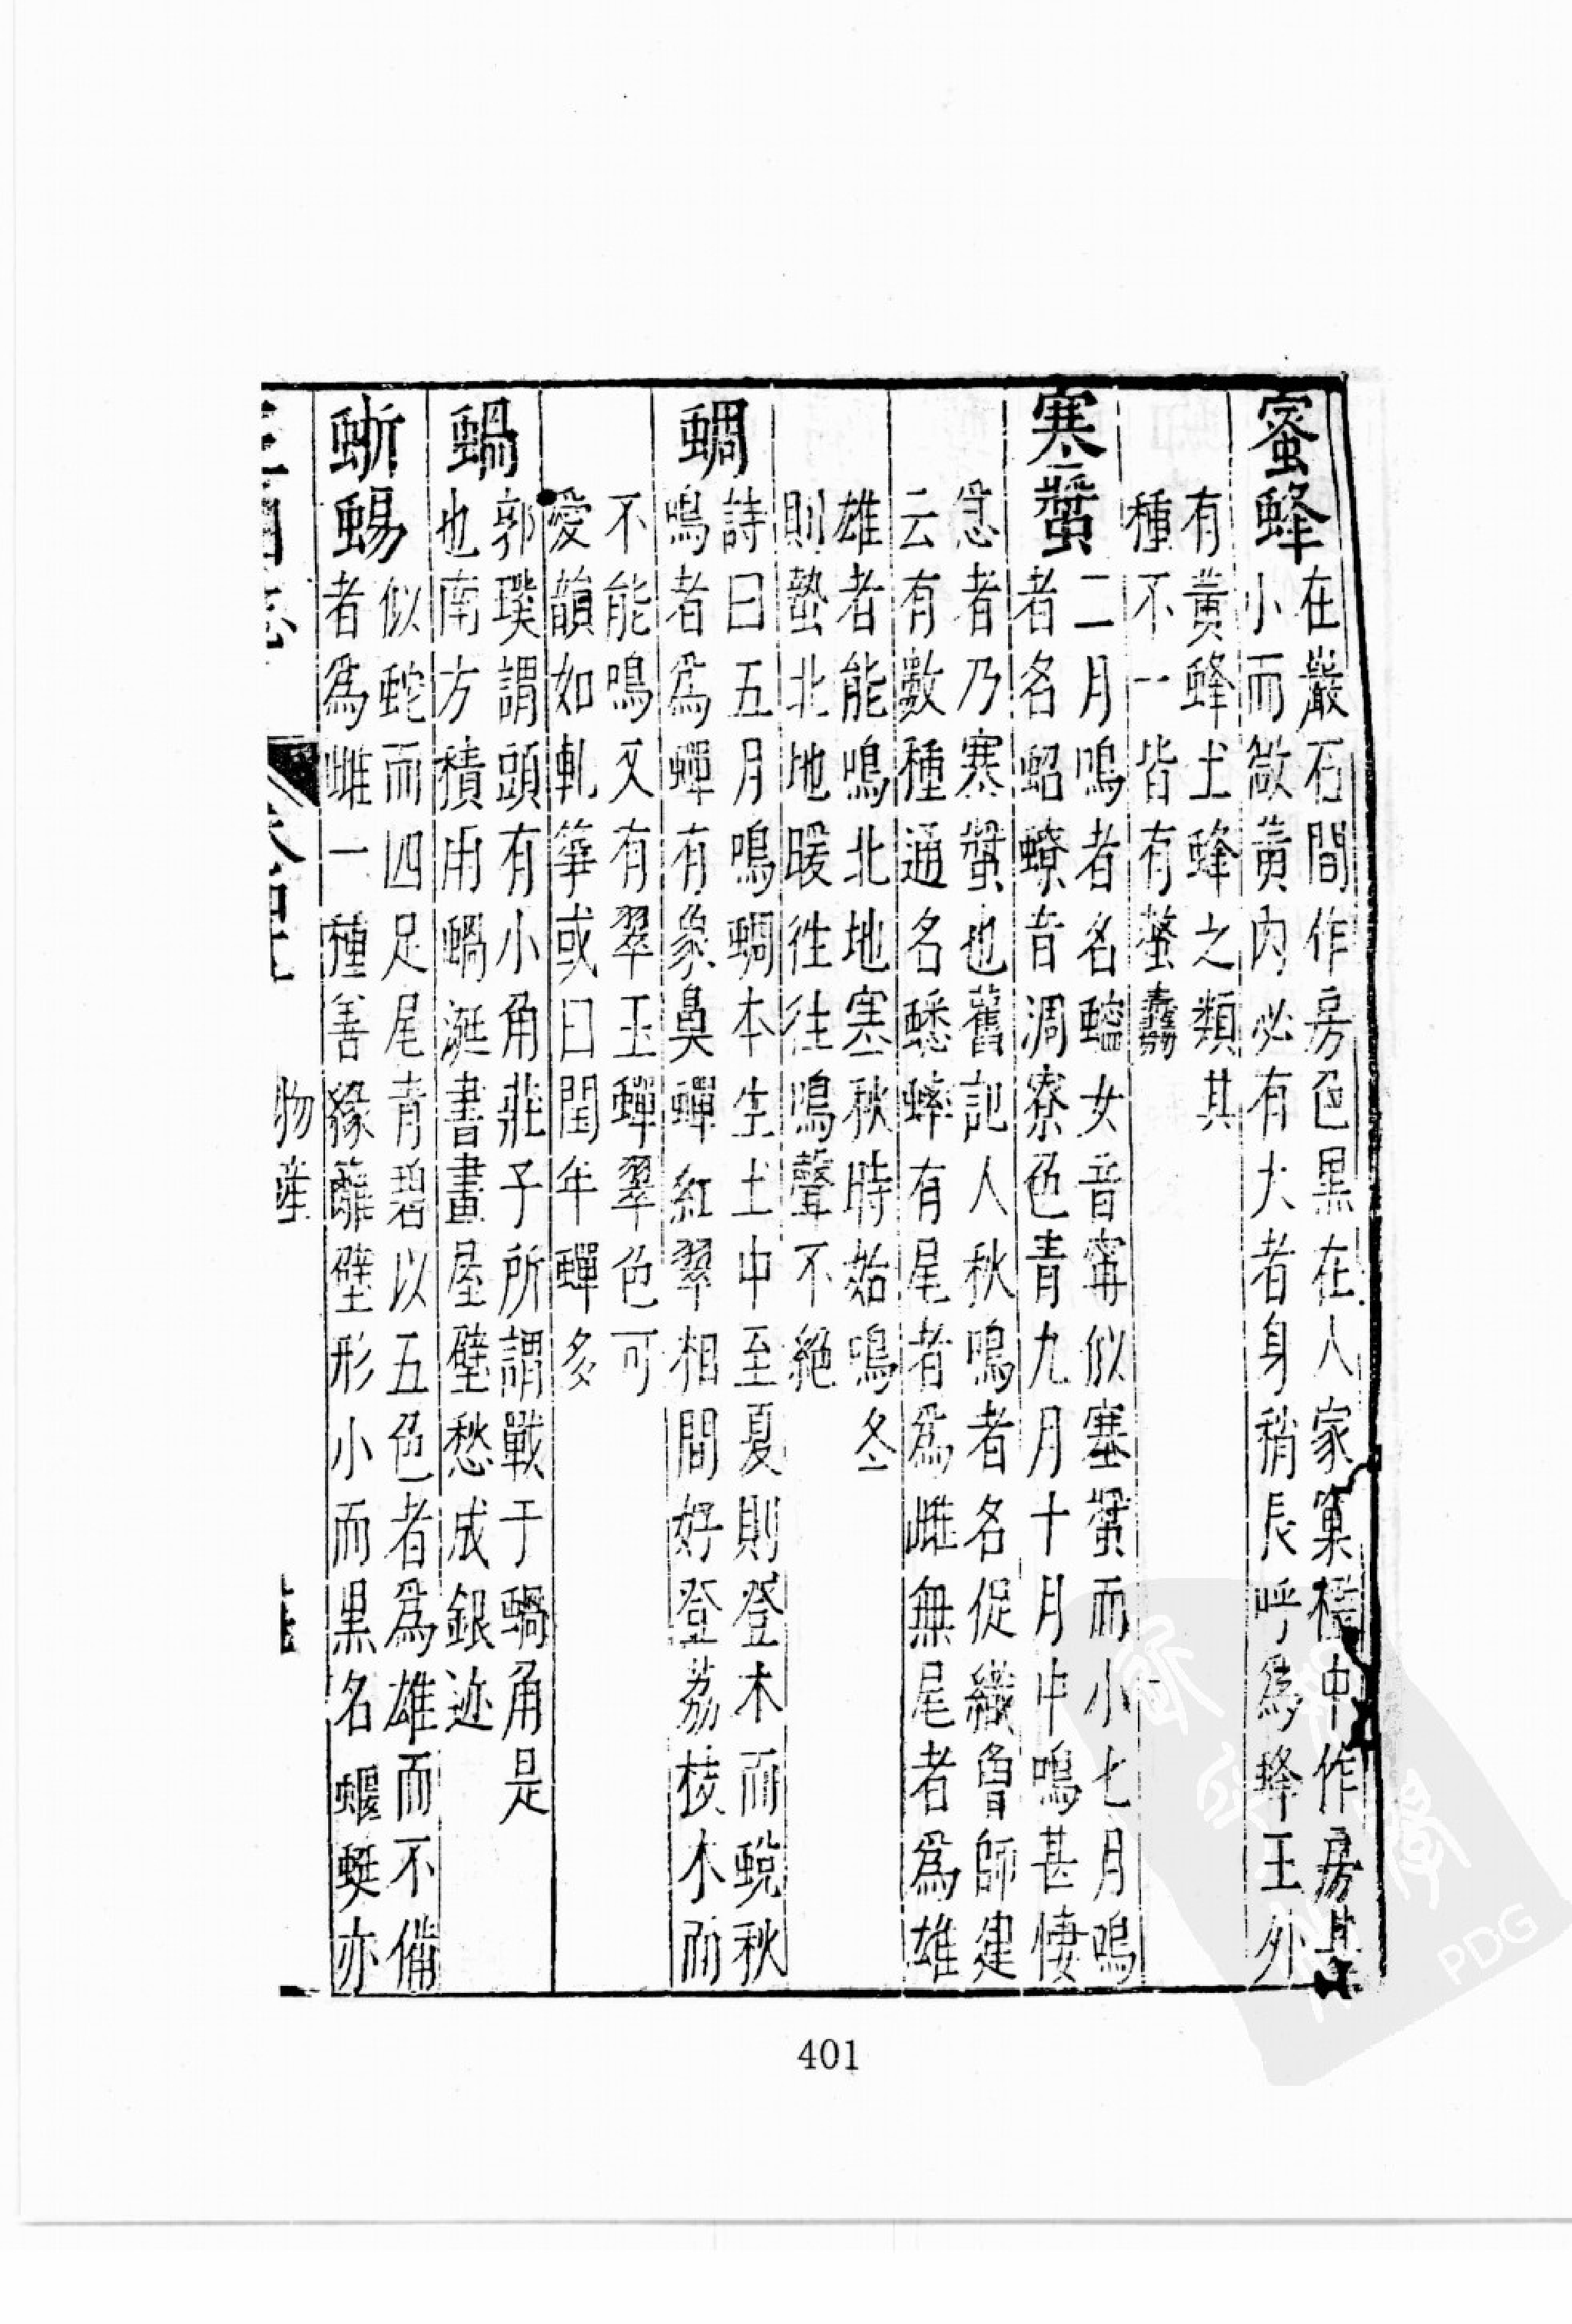 蜜蜂
在巖石間作房色黑在人家窠檻中作房其
小而微黃內必有大者身稍長呼爲蜂王外
有黃蜂土蜂之類其
種不一皆有螫毒
寒螀
二月鳴者名蟪女音甯似寒螀而小七月鳴
者名蛁蟟音凋寮色青九月十月中鳴甚悽
急者乃寒螀也舊記人秋鳴者名促織魯師建
云有數種通名蟋蟀有尾者爲雌無尾者爲雄
雄者能鳴北地寒秋時始鳴冬
則蟄北地暖徃徃鳴聲不絕
蜩
詩曰五月鳴蜩本生土中至夏則登木而蛻秋
鳴者爲蟬有象鼻蟬紅翠相間好登荔枝木而
不能鳴又有翠玉蟬翠色可
愛韻如軋箏或曰閏年蟬多
蝸
郭璞謂頭有小角莊子所謂戰于蝸角是
也南方積雨蝸涎書畫屋壁愁成銀迹
蜥蜴
似蛇而四足尾青碧以五色者爲雄而不備
者爲雌一種善緣籬壁形小而黑名蝘蜓亦
物產
401
PDG